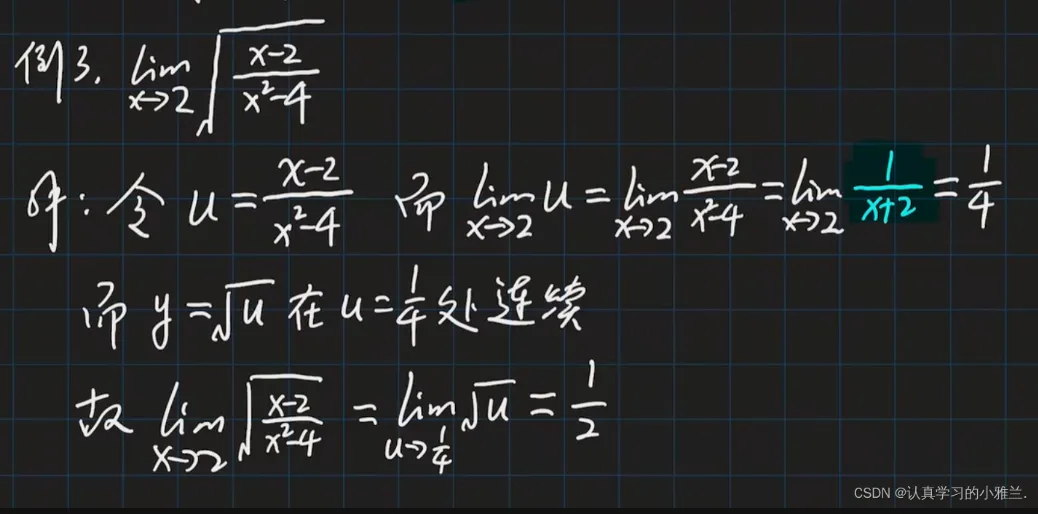 例3. lim x→2 √((x-2)/(x²-4))
解: 令 u = (x-2)/(x²-4) 而 lim x→2 u = lim x→2 (x-2)/(x²-4) = lim x→2 1/(x+2) = 1/4
而 y = √u 在 u = 1/4 处连续
故 lim x→2 √((x-2)/(x²-4)) = lim u→1/4 √u = 1/2
CSDN @认真学习的小雅兰.